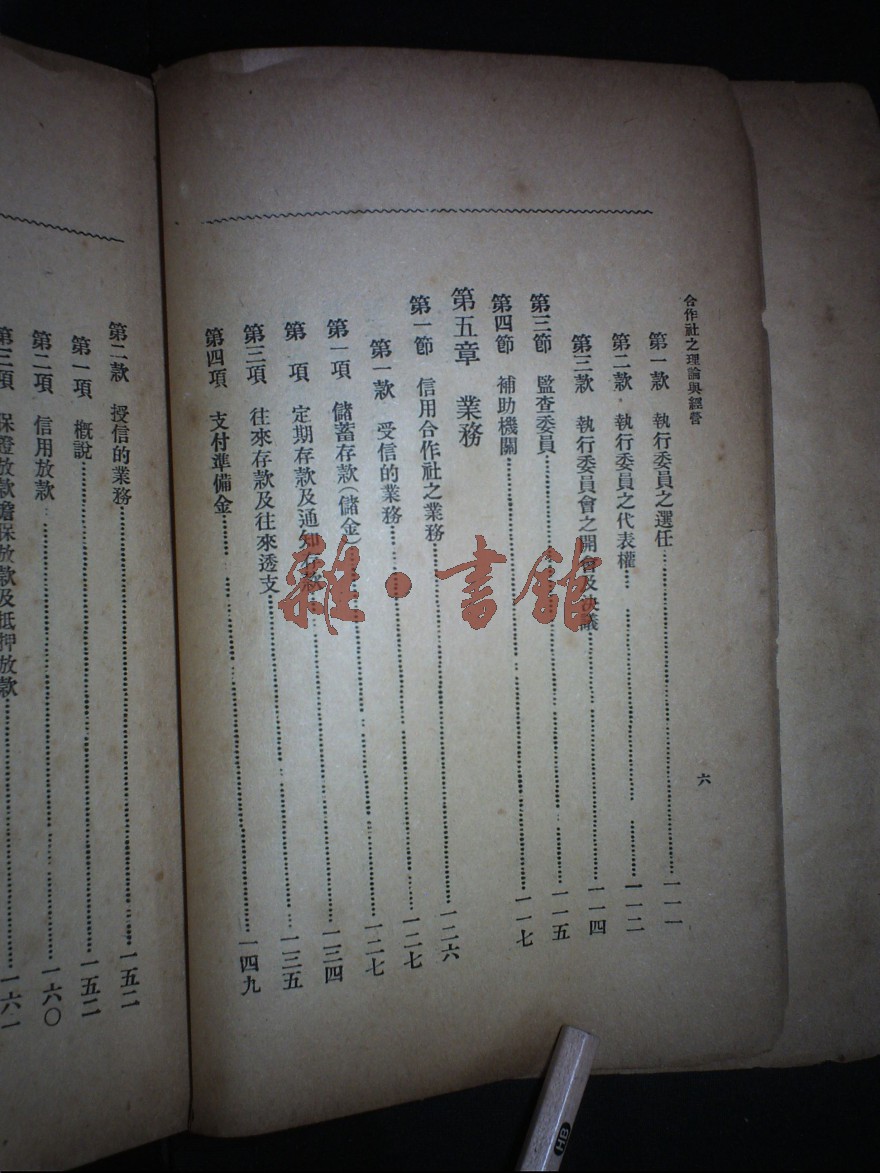 合作社之理論與經營 六
第一款 執行委員之選任……一一一
第二款 執行委員之代表權……一一二
第三款 執行委員會之開會及決議……一一四
第三節 監查委員……一一五
第四節 補助機關……一一七
第五章 業務
第一節 信用合作社之業務……一二六
第一款 受信的業務……一二七
第一項 儲蓄存款(儲金)……一二七
第 項 定期存款及通知存款……一三四
第三項 往來存款及往來透支……一三五
第四項 支付準備金……一四九
第二款 授信的業務……一五二
第一項 概說……一五二
第二項 信用放款……一六〇
第三項 保證放款擔保放款及抵押放款……一六一
雜·書館
HB